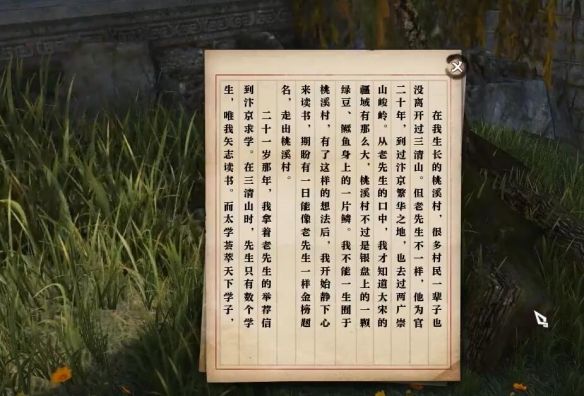 在我生长的桃溪村，很多村民一辈子也
没离开过三清山。但老先生不一样，他为官
二十年，到过汴京繁华之地，也去过两广崇
山峻岭。从老先生的口中，我才知道大宋的
疆域有那么大，桃溪村不过是银盘上的一颗
绿豆、鲲鱼身上的一片鳞。我不能一生囿于
桃溪村，有了这样的想法后，我开始静下心
来读书，期盼有一日能像老先生一样金榜题
名，走出桃溪村。
二十一岁那年，我拿着老先生的举荐信
到汴京求学。在三清山时，先生只有数个学
生，唯我矢志读书。而太学荟萃天下学子，